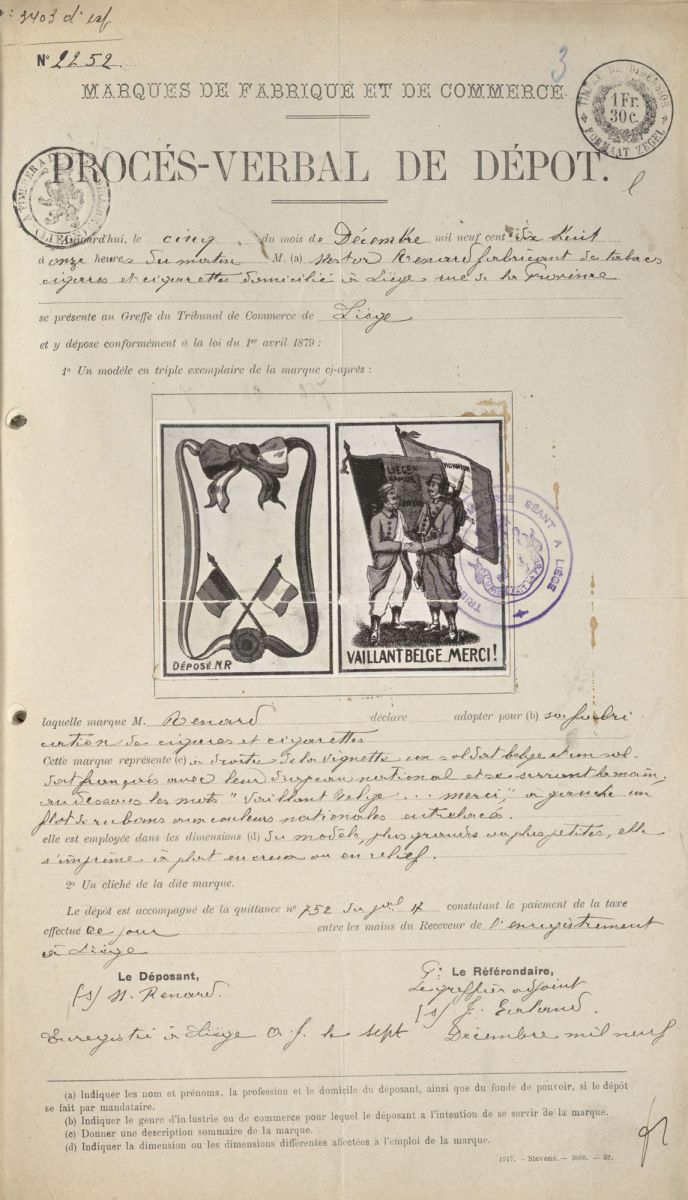 N° 3403 d'
N° 2252.
3
TIMBRE DE DIMENSION
1 Fr. 30 c.
FORMAAT ZEGEL
MARQUES DE FABRIQUE ET DE COMMERCE
PROCÉS-VERBAL DE DÉPOT.
Aujourd'hui, le cinq du mois de Décembre mil neuf cent dix huit
à onze heures du matin M. (a) Nestor Renard fabricant de tabacs
cigares et cigarettes domicilié à Liége rue de la Province
se présente au Greffe du Tribunal de Commerce de Liége
et y dépose conformément à la loi du 1er avril 1879 :
1° Un modèle en triple exemplaire de la marque ci-après :
DÉPOSÉ N.R
LIEGE
NAMUR
HONNEUR
VAILLANT BELGE_MERCI!
SÉANT A LIÉGE
laquelle marque M. Renard declare adopter pour (b) sa fabri
cation de cigares et cigarettes
Cette marque représente (c) à droite de la vignette un soldat belge et un sol
dat français avec leur drapeau national et se serrant la main,
au dessous les mots "Vaillant Belge ... merci" à gauche un
flot de rubans aux couleurs nationales entrelacés.
elle est employée dans les dimensions (d) du modèle, plus grandes ou plus petites, elle
s'imprime à plat en creux ou en relief.
2° Un cliché de la dite marque.
Le dépôt est accompagné de la quittance n° 752 du 4 constatant le paiement de la taxe
effectué ce jour entre les mains du Receveur de l'enregistrement
à Liége
Le Déposant,
(s) N. Renard.
Le Référendaire,
Le greffier adjoint
(s) J.
Enregistré à Liége le sept Décembre mil neuf
(a) Indiquer les nom et prénoms, la profession et le domicile du déposant, ainsi que du fondé de pouvoir, si le dépôt
se fait par mandataire.
(b) Indiquer le genre d'industrie ou de commerce pour lequel le déposant a l'intention de se servir de la marque.
(c) Donner une description sommaire de la marque.
(d) Indiquer la dimension ou les dimensions différentes affectées à l'emploi de la marque.
1917. - Stevens. - 2000. - 32.